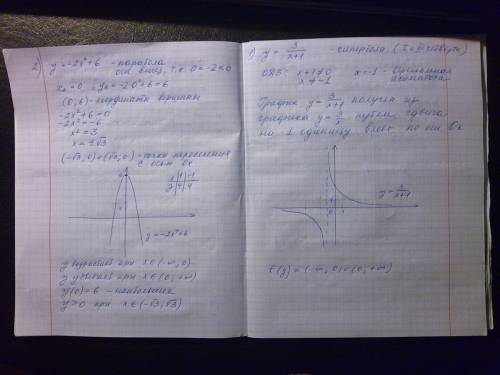 2) y = -2x²+6 - парабола
ветви вниз, т.к. a = -2 < 0
x₀ = 0, y₀ = -2·0²+6 = 6
(0; 6) - координаты вершины
-2x²+6 = 0
-2x² = -6
x² = 3
x = ±√3
(-√3; 0) и (√3; 0) - точки пересечения
с осью Ox
x | 1 | -1
y | 4 | 4
y = -2x²+6
y возрастает при x ∈ (-∞; 0)
y убывает при x ∈ (0; +∞)
y(0) = 6 - наибольшее
y > 0 при x ∈ (-√3; √3)
y = 3/(x+1) - гипербола (I и III четверти)
x+1 ≠ 0
x ≠ -1
x = -1 - вертикальная
асимптота
График y = 3/(x+1) получен из
графика y = 3/x путем сдвига
на 1 единицу влево по оси Ox
y = 3/(x+1)
E(y) = (-∞; 0) ∪ (0; +∞)